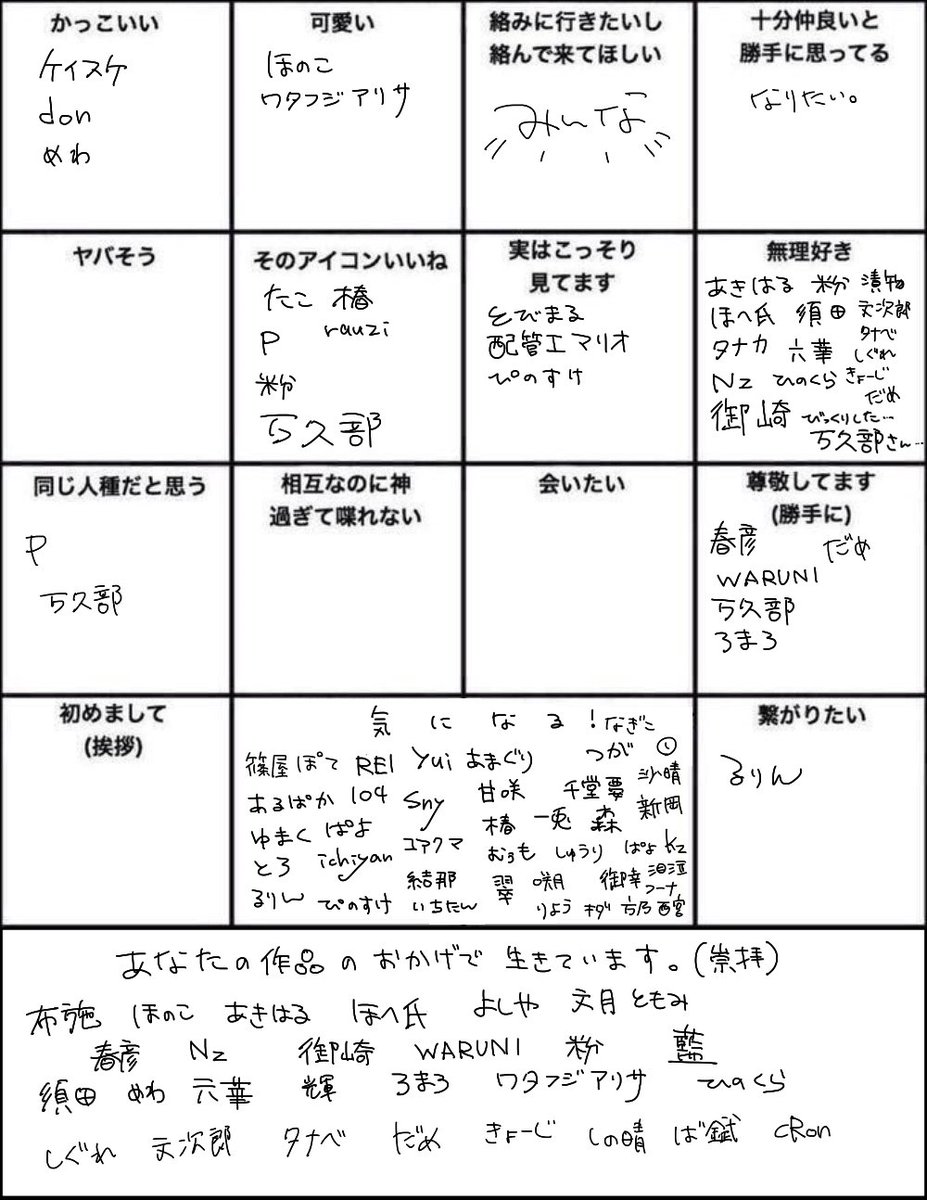 かっこいい
ケイスケ
don
めわ
可愛い
ほのこ
ワタフジアリサ
絡みに行きたいし
絡んで来てほしい
みんな
十分仲良いと
勝手に思ってる
なりたい。
ヤバそう
そのアイコンいいね
たこ 椿
P rauzi
粉
万久部
実はこっそり
見てます
とびまる
配管工マリオ
ぴのすけ
無理好き
あきはる 粉 漬物
ほへ氏 須田 文次郎
タナカ 六華 タナベ しぐれ
Nz ひのくら きょーじ
だめ
御崎 びっくりした…
万久部さん…
同じ人種だと思う
P
万久部
相互なのに神
過ぎて喋れない
会いたい
尊敬してます
(勝手に)
春彦 だめ
WARUNI
万久部
ろまろ
初めまして
(挨拶)
気になる! なぎこ
篠屋 ぽて REI Yui あまぐり つが
あるぱか 104 Sny 甘咲 千堂要 沙晴
ゆまく ぱよ コアクマ 椿 一兎 森 新岡
とろ ichiyan むぅも しゅうり ぱよ Kz
るりん ぴのすけ 結那 いちたん 翠 朔 りよう 御幸 フーナ 西宮
繋がりたい
るりん
あなたの作品のおかげで生きています。(崇拝)
布施 ほのこ あきはる ほへ氏 よしや 文月ともみ
春彦 Nz 御崎 WARUNI 粉 藍
須田 めわ 六華 輝 ろまろ ワタフジアリサ ひのくら
しぐれ 文次郎 タナベ だめ きょーじ しの晴 ば鉽 cRon